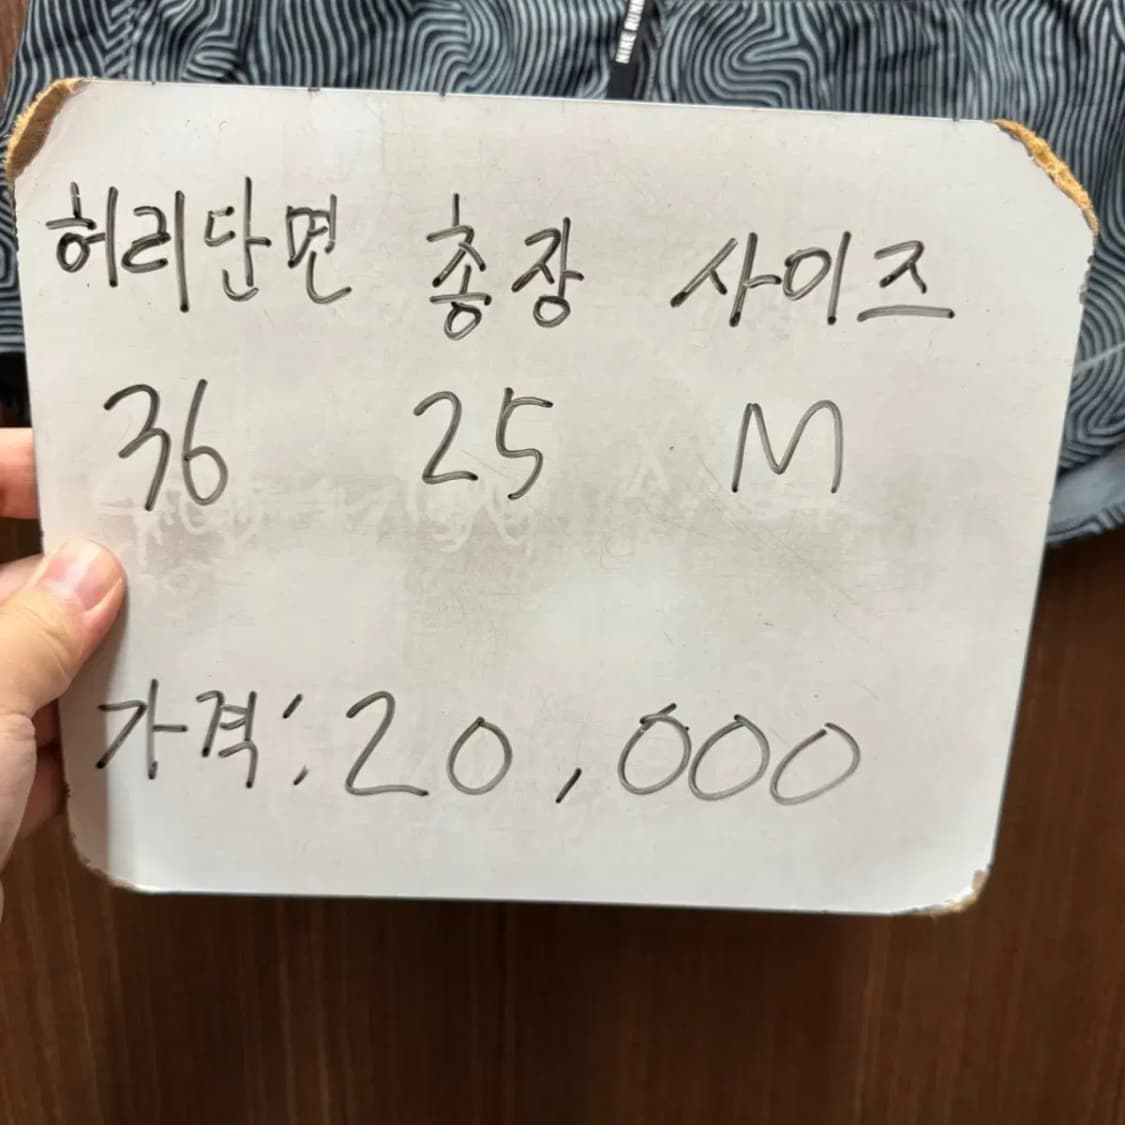 NIKE RUNN
허리단면 총장 사이즈
36 25 M
가격: 20,000